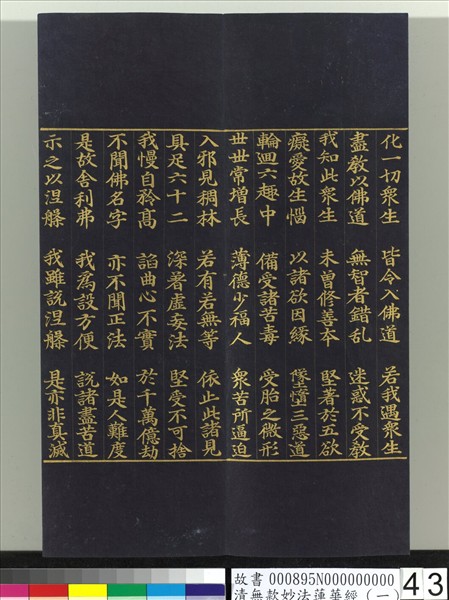 化一切眾生 皆令入佛道 若我遇眾生
盡教以佛道 無智者錯亂 迷惑不受教
我知此眾生 未曾修善本 堅著於五欲
癡愛故生惱 以諸欲因緣 墜墮三惡道
輪迴六趣中 備受諸苦毒 受胎之微形
世世常增長 薄德少福人 眾苦所逼迫
入邪見稠林 若有若無等 依止此諸見
具足六十二 深著虛妄法 堅受不可捨
我慢自矜高 諂曲心不實 於千萬億劫
不聞佛名字 亦不聞正法 如是人難度
是故舍利弗 我為設方便 說諸盡苦道
示之以涅槃 我雖說涅槃 是亦非真滅
故書 000895N000000000
清無款妙法蓮華經(一)
43